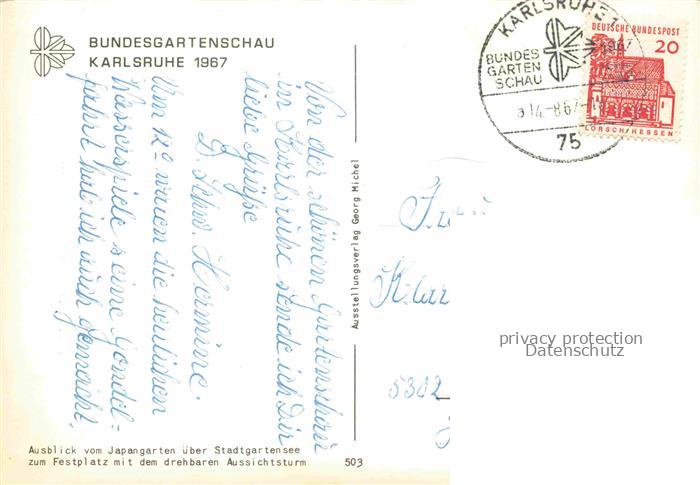 BUNDESGARTENSCHAU
KARLSRUHE 1967
Von der schönen Gartenschau
in Karlsruhe sende ich Dir
liebe Grüße
D. Schw. Hermine.
Von 12° waren die herrlichen
Wasserspiele u. eine Gondel-
fahrt hab ich auch gemacht.
Ausblick vom Japangarten über Stadtgartensee
zum Festplatz mit dem drehbaren Aussichtsturm 503
Ausstellungsverlag Georg Michel
KARLSRUHE 1
BUNDES
GARTEN
SCHAU
1967
14.-8.67
75
DEUTSCHE BUNDESPOST
20
LORSCH/HESSEN
5382
privacy protection
Datenschutz